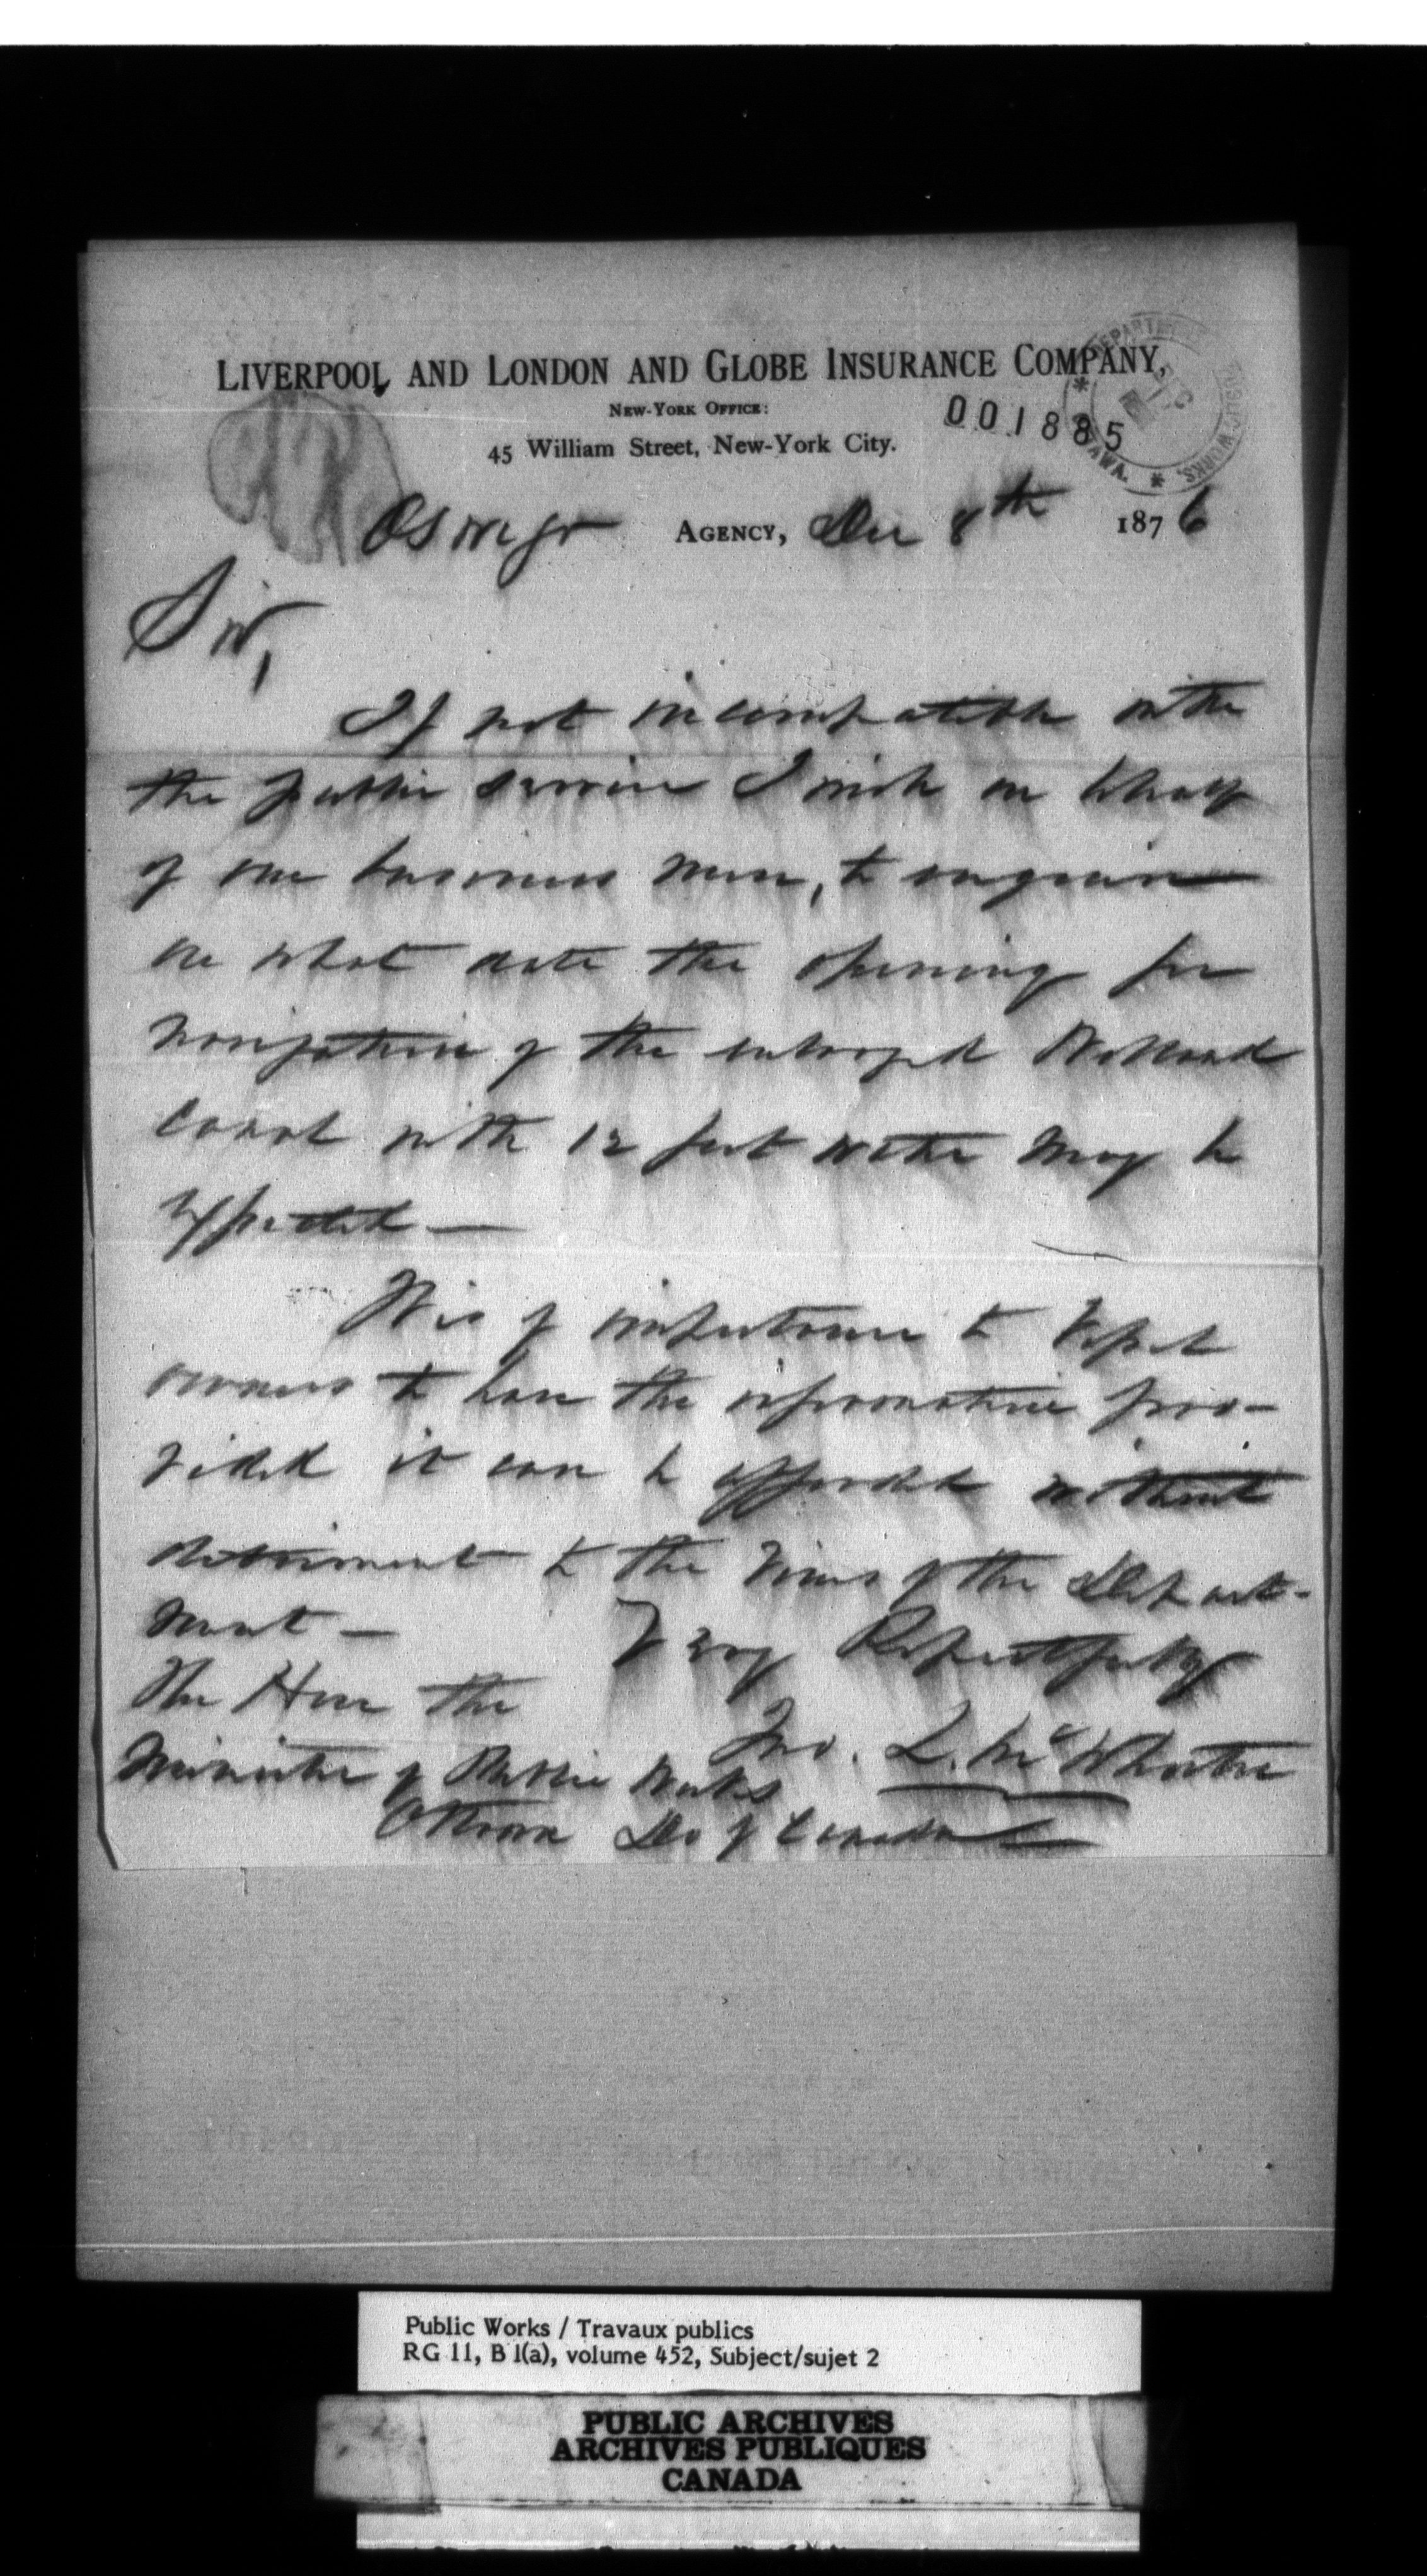 LIVERPOOL AND LONDON AND GLOBE INSURANCE COMPANY,
NEW-YORK OFFICE:
001885
45 William Street, New-York City.
DEPARTMENT PUBLIC WORKS, * OTTAWA. *
Oswego AGENCY, Dec 8th 1876
Sir,
If not incompatible with
the public service I wish on behalf
of our business men, to enquire
on what date the opening for
navigation of the enlarged Welland
Canal with 12 feet water may be
expected —
It is of importance to Vessel
owners to have the information pro-
vided it can be afforded without
detriment to the views of the Depart-
ment — Very Respectfully
The Hon the
Jno. L. McWhorter
Minister of Public Works
Ottawa Do of Canada
Public Works / Travaux publics
RG 11, B 1(a), volume 452, Subject/sujet 2
PUBLIC ARCHIVES
ARCHIVES PUBLIQUES
CANADA